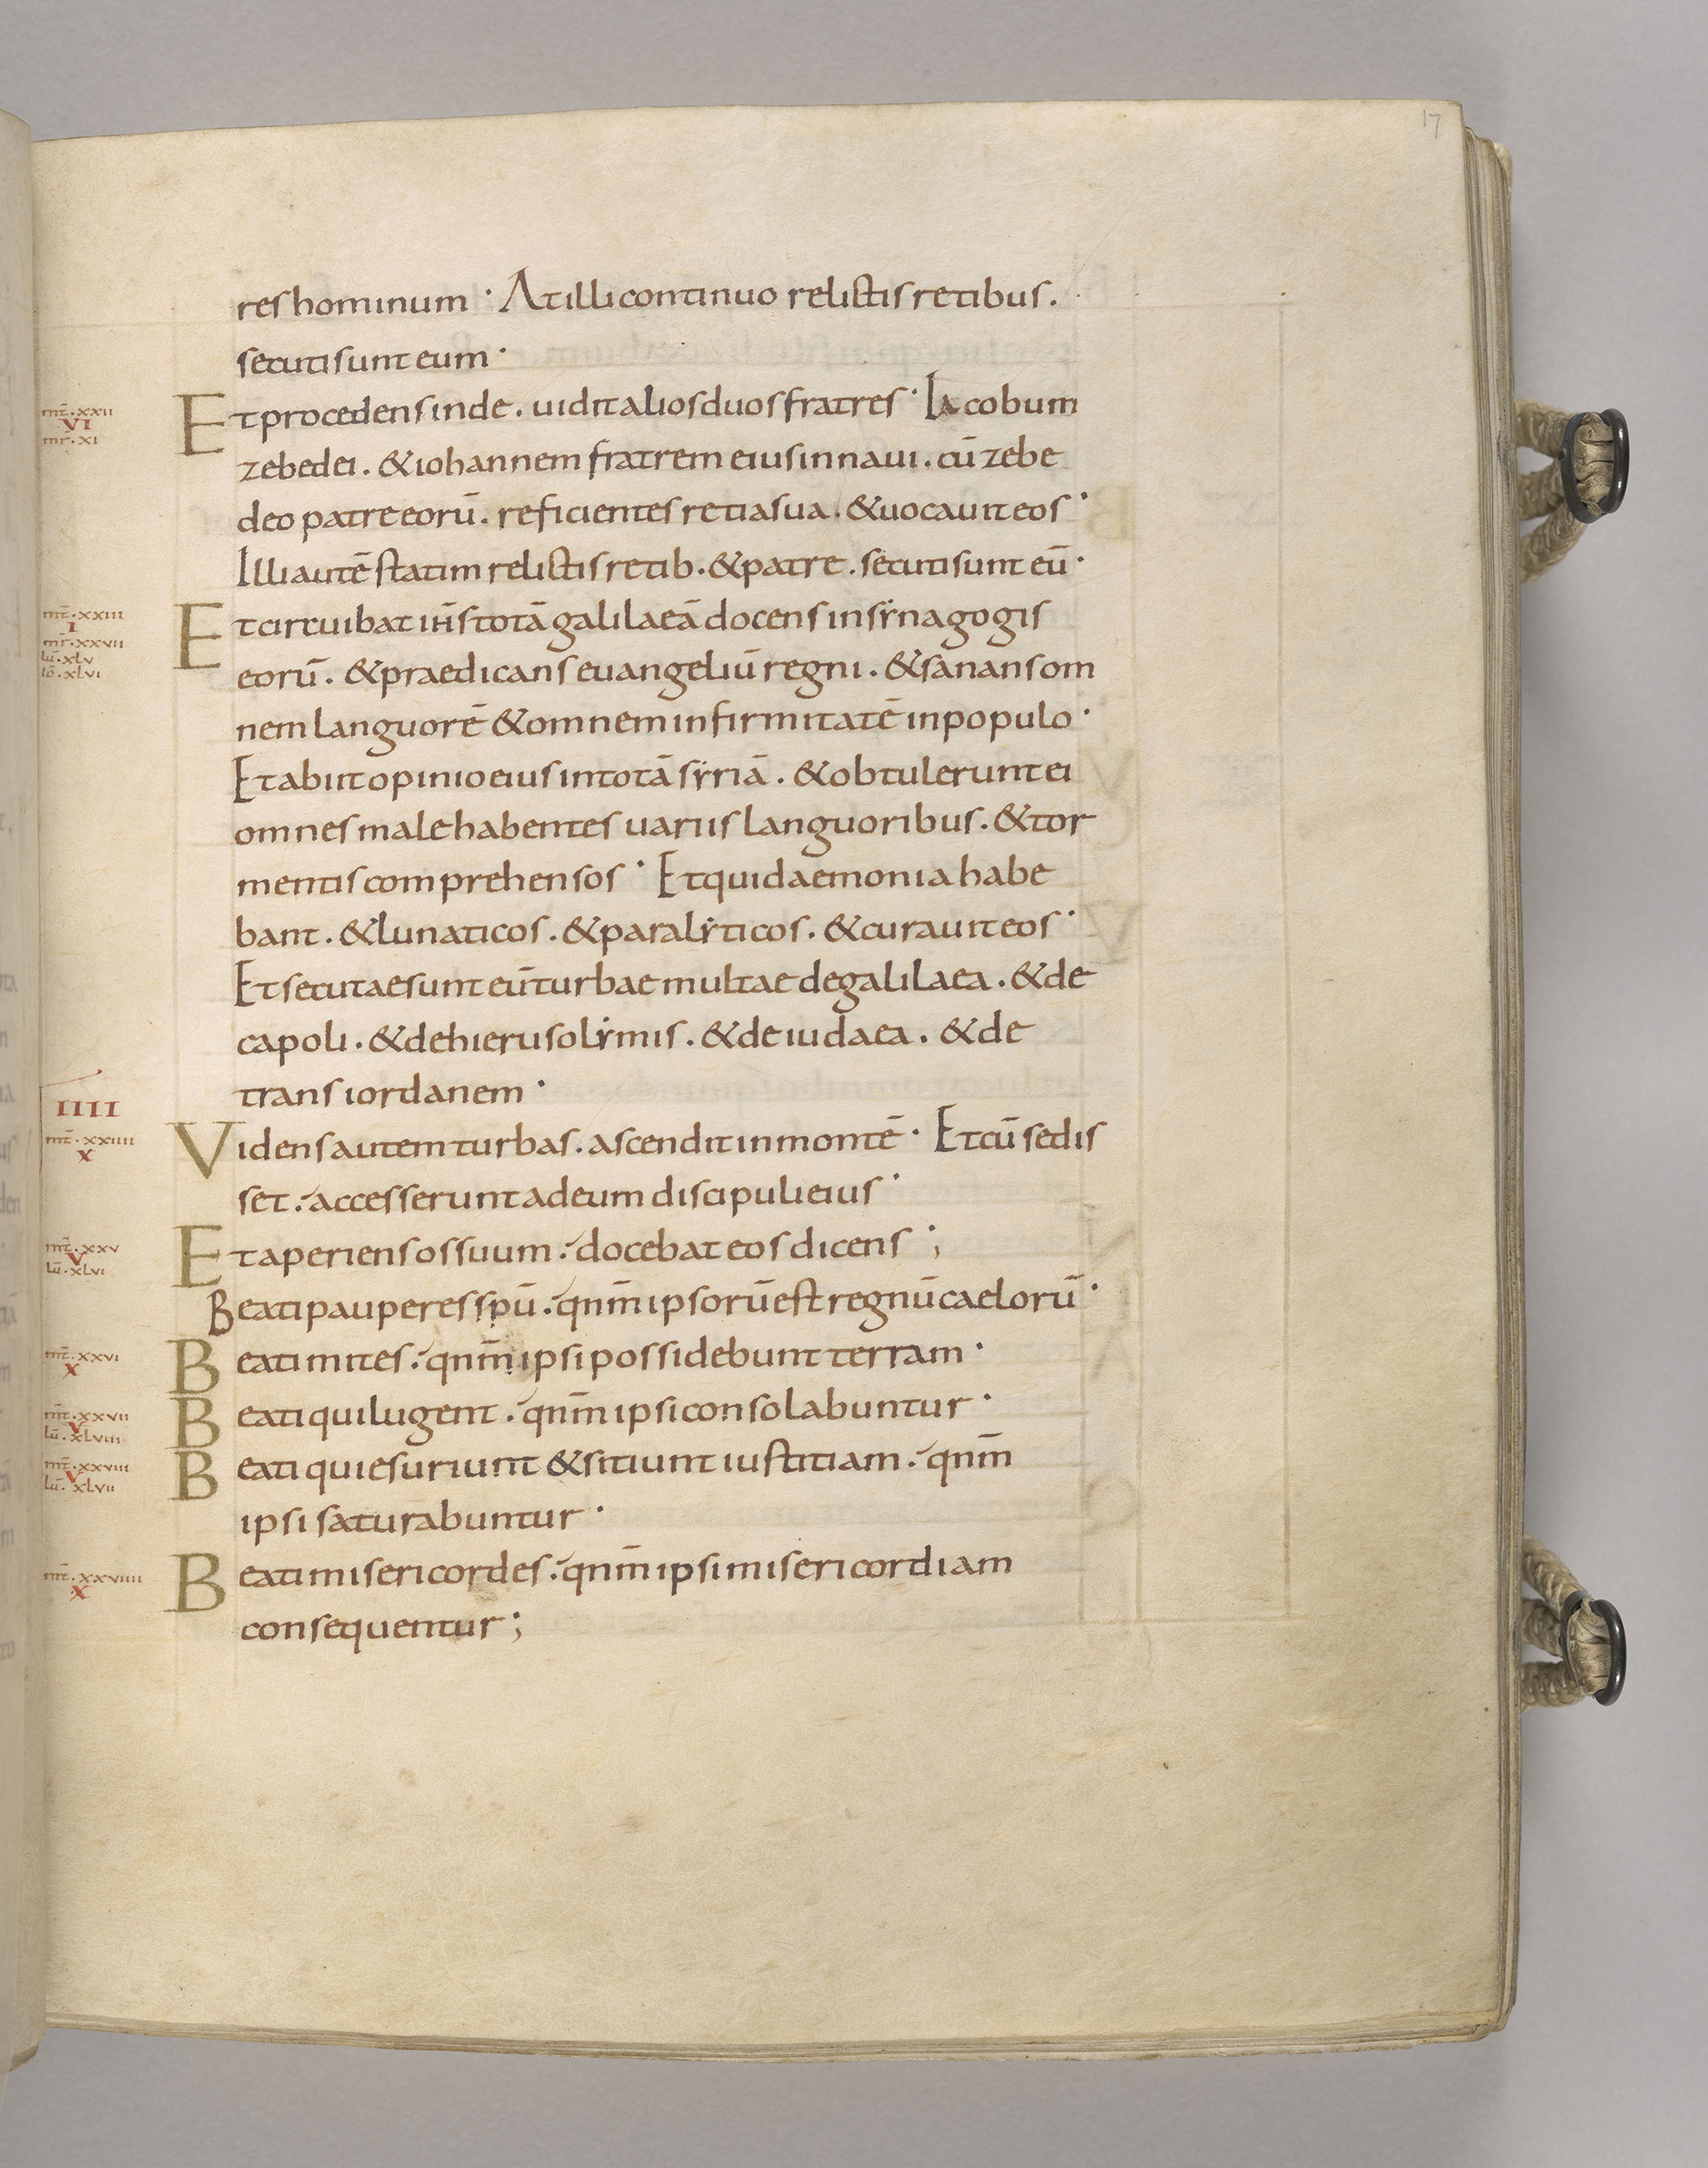 17
res hominum · At illi continuo relictis retibus.
secuti sunt eum ·
mt̄·xxii
VI
mr̄·xi
Et procedens inde. uidit alios duos fratres · Iacobum
zebedei. & iohannem fratrem eius in naui. cū zebe
deo patre eorū. reficientes retia sua. & uocauit eos ·
Illi autē statim relictis retib. & patre. secuti sunt eū ·
mt̄·xxiii
I
mr̄·xxvii
lū·xlv
lō·xlvi
Et circuibat ih̄s totā galilaeā docens in synagogis
eorū. & praedicans euangeliū regni. & sanans om
nem languorē & omnem infirmitatē in populo ·
Et abiit opinio eius in totā syriā. & obtulerunt ei
omnes male habentes uariis languoribus. & tor
mentis comprehensos · Et qui daemonia habe
bant. & lunaticos. & paralyticos. & curauit eos ·
Et secutae sunt eū turbae multae de galilaea. & de
capoli. & de hierusolymis. & de iudaea. & de
trans iordanem ·
IIII
mt̄·xxiiii
X
Videns autem turbas. ascendit in montē · Et cū sedis
set. accesserunt ad eum discipuli eius ·
mt̄·xxv
V
lū·xlvi
Et aperiens os suum. docebat eos dicens ;
Beati pauperes spū. qnm̄ ipsorū est regnū caelorū ·
mt̄·xxvi
X
Beati mites. qnm̄ ipsi possidebunt terram ·
mt̄·xxvii
V
lū·xlviii
Beati qui lugent. qnm̄ ipsi consolabuntur ·
mt̄·xxviii
V
lū·xlvii
Beati qui esuriunt & sitiunt iustitiam. qnm̄
ipsi saturabuntur ·
mt̄·xxviiii
X
Beati misericordes. qnm̄ ipsi misericordiam
consequentur ;